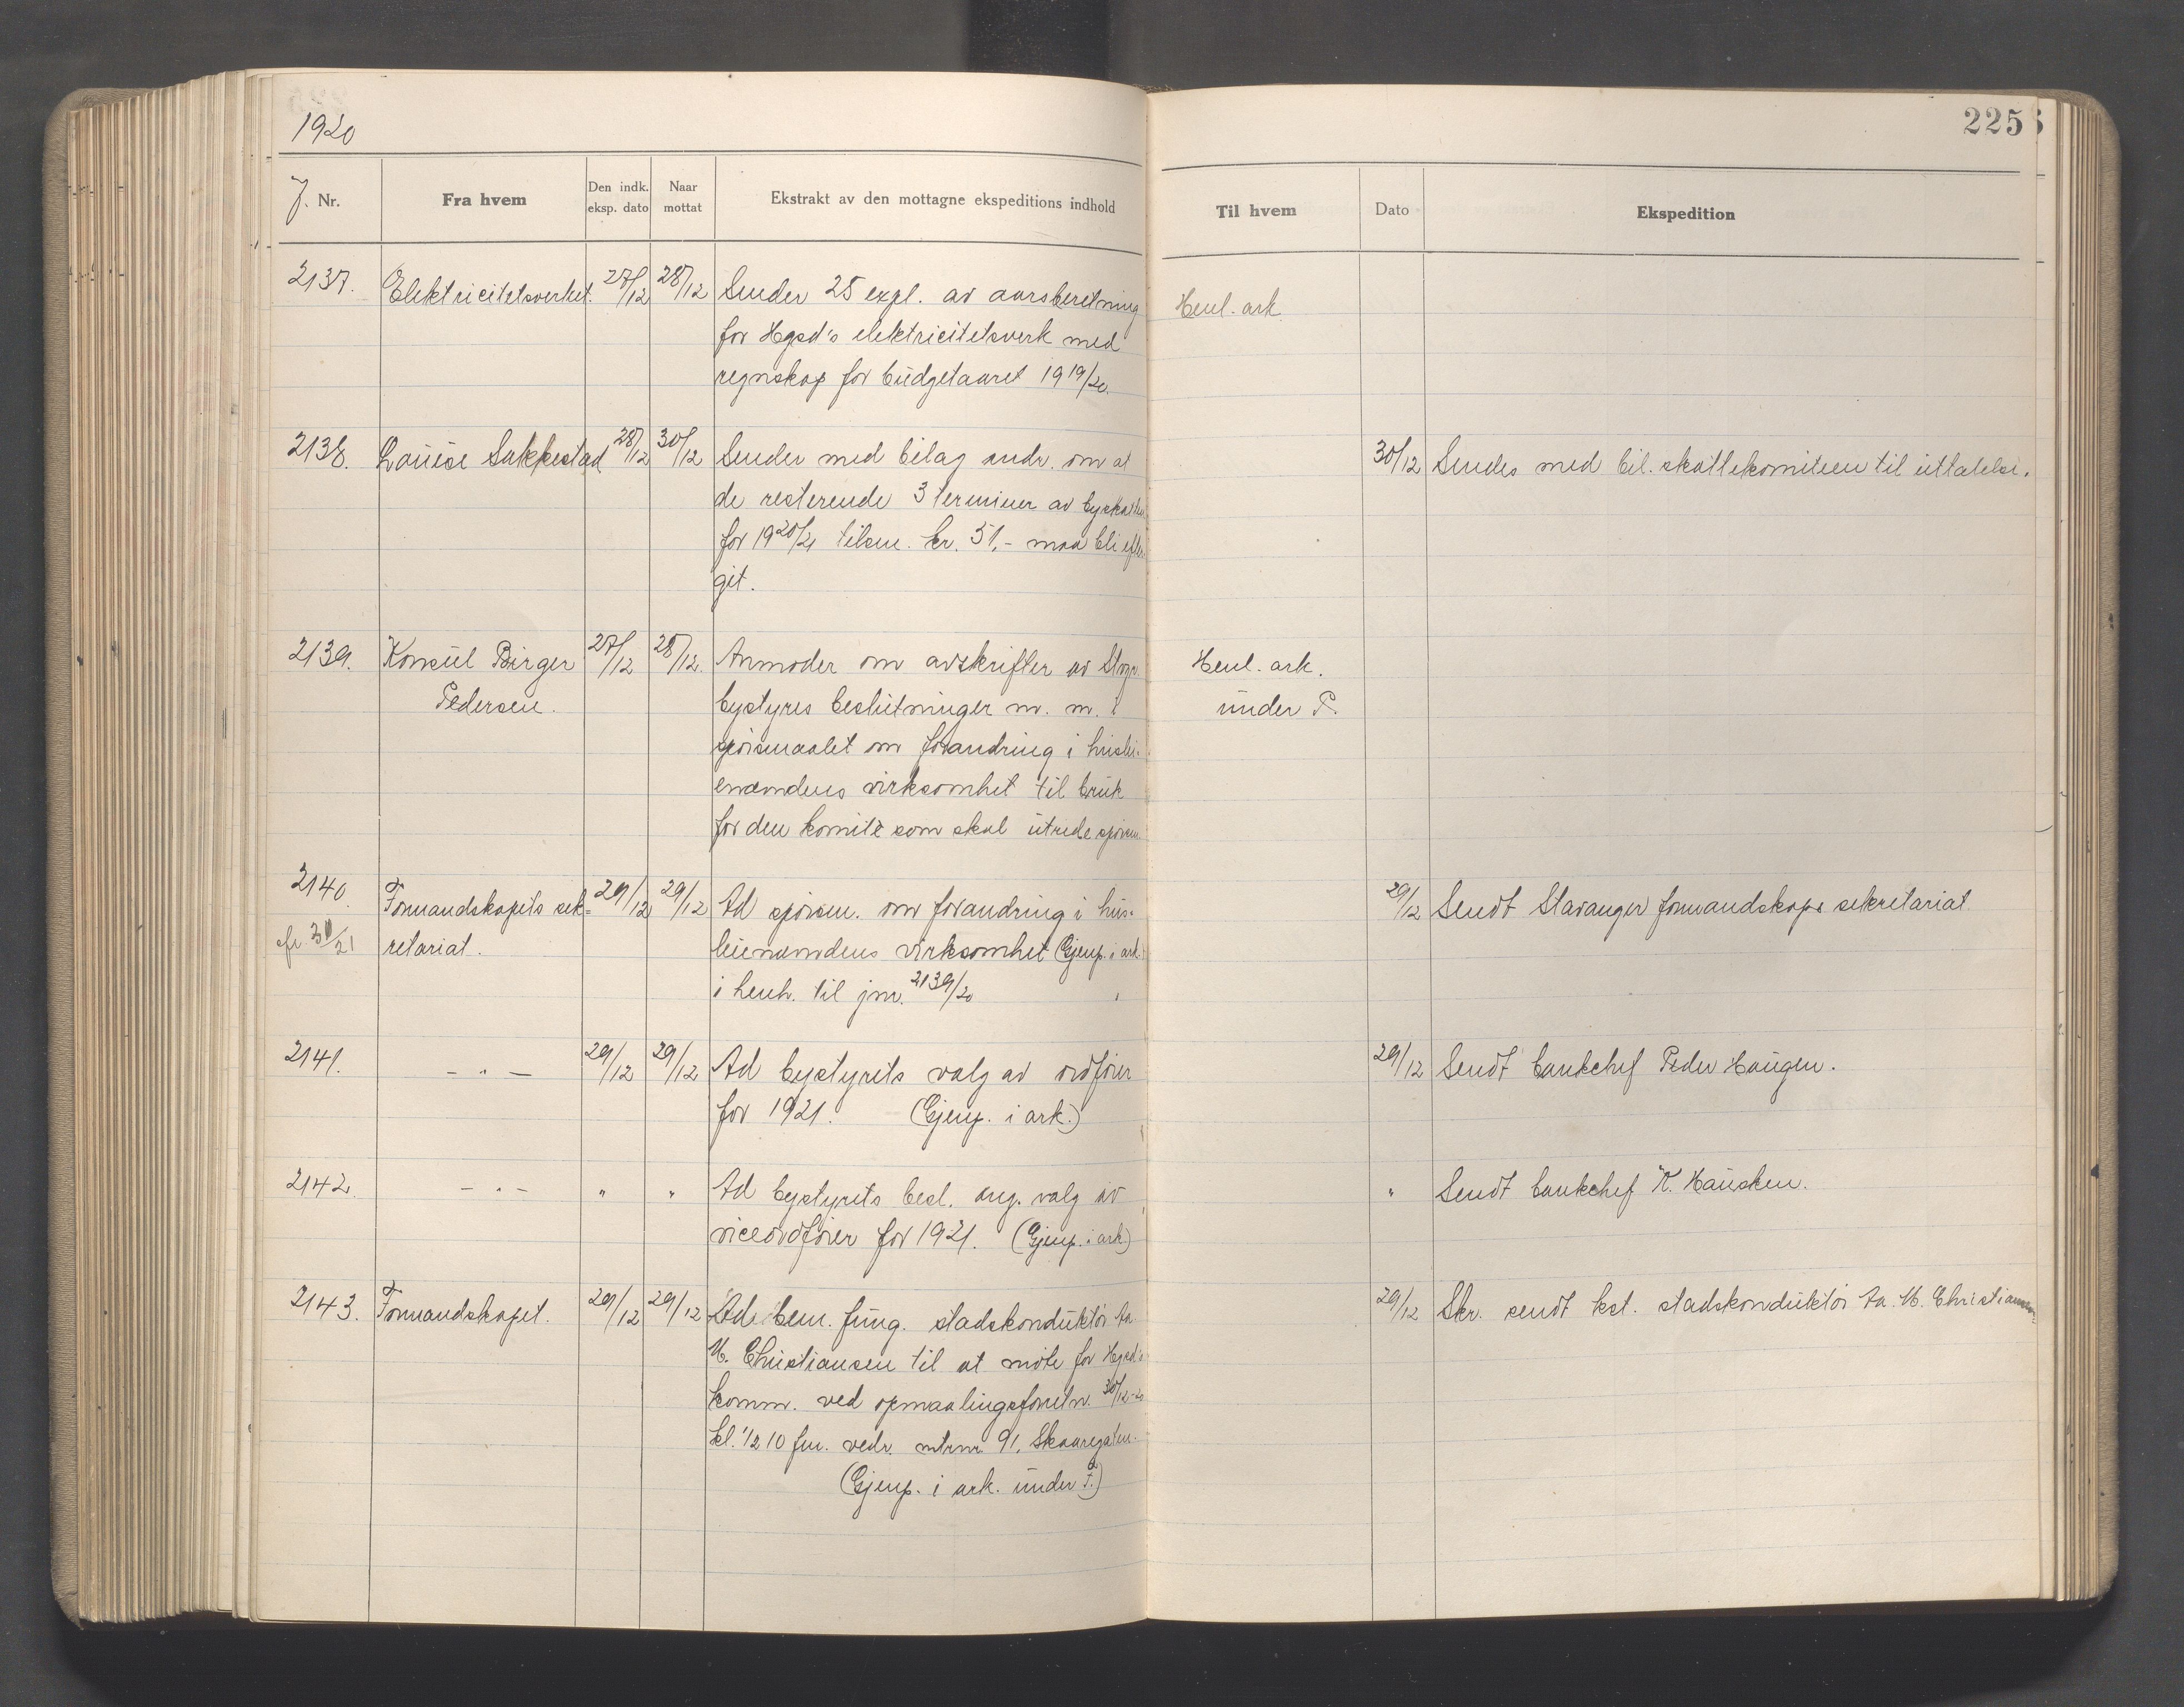 1920
225
J. Nr.
Fra hvem
Den indk. eksp. dato
Naar mottat
Ekstrakt av den mottagne ekspeditions indhold
Til hvem
Dato
Ekspedition
2137. Elektricitetsverket. 27/12 28/12 Sender 25 expl. av aarsberetning Henl. ark.
for Hgsd's elektricitetsverk med
regnskap for budgetaaret 1919/20.
2138. Louise Sakkestad 28/12 30/12 Sender med bilag andr. om at 30/12 Sendes med bil. skattekomiteen til uttalelse.
de resterende 3 terminer av byskatten
for 1920/21 tilsm. kr. 51.- maa bli efter-
git.
2139. Konsul Birger 27/12 28/12. Anmoder om avskrifter av Stvgr. Henl. ark.
Pedersen. bystyres beslutninger m. m. i under P.
spörsmaalet om forandring i huslei-
enævndens virksomhet til bruk
for den komité som skal utrede spörsm.
2140. Formandskapets sek= 29/12 29/12 Ad spörsm. om forandring i hus- 29/12 Sendt Stavanger formandskaps sekretariat.
cfr. 30/21 retariat. leienævndens virksomhet (Gjenp. i ark.)
i henh. til jnr. 2139/20
2141. - " - 29/12 29/12 Ad bystyrets valg av ordförer 29/12 Sendt banksjef Peder Haugen.
for 1921. (Gjenp. i ark.)
2142. - " - " " Ad bystyrets besl. ang. valg av " Sendt bankchef K. Hausken.
viceordförer for 1921. (Gjenp. i ark.)
2143. Formandskapet. 29/12 29/12 Ad bem. fung. stadskonduktör Aa. 29/12 Skr. sendt kst. stadskonduktör Aa. M. Christiansen.
M. Christiansen til at möte for Hgsd's
komm. ved opmaalingsforretn. 30/12-20
kl. 1/2 10 fm. vedr. mtrnr. 91, Skaaregaten.
(Gjenp. i ark. under F.)